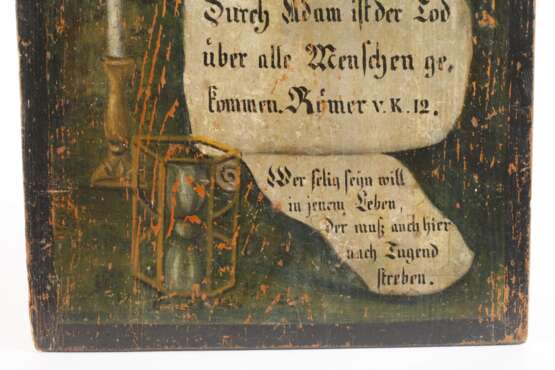 Durch Adam ist der Tod
über alle Menschen ge,
kommen. Römer v. K. 12.
Wer selig seyn will
in jenem Leben,
der muß auch hier
nach Tugend
streben.